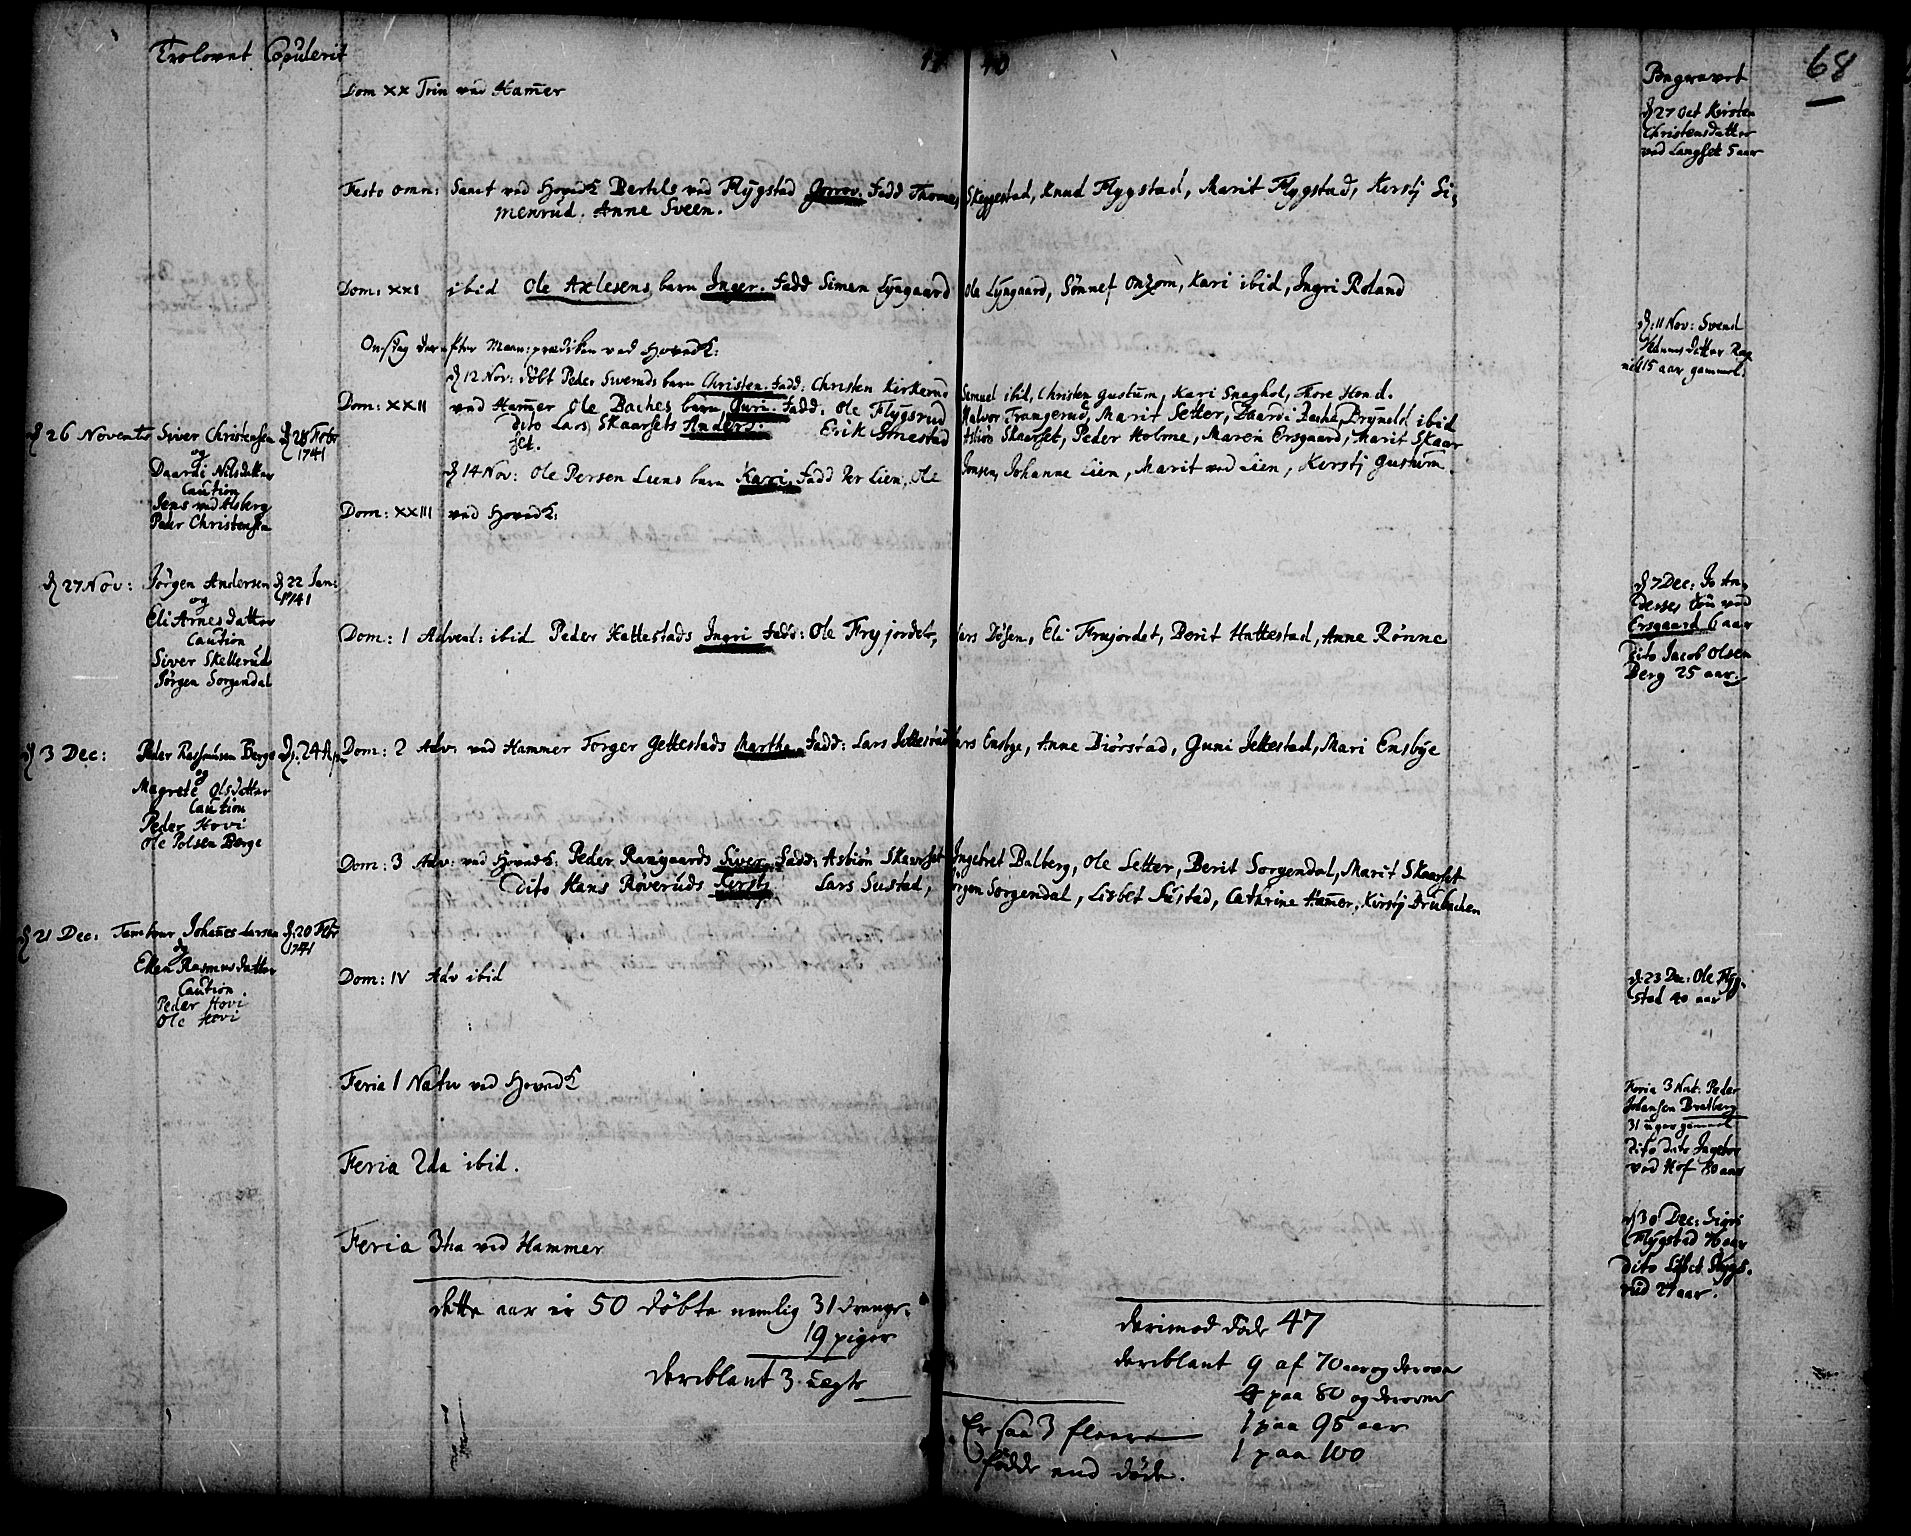 Trolovet Copulerit 17 40 68
Dom XX Trin ved Hamer
Begravet
27 Oct Kirsten
Christensdatter
ved Langset 5 aar
Festo omn: Sanct ved Hoved Bertels ved Flygstad Fadd Thomas Skeggestad, Knud Flygstad, Marit Flygstad, Kersti Si-
menrud. Anne Sveen.
Dom: XXI ibid Ole Axlesens barn Inger. Fadd Simen Lyngaard Ole Lyngaard, Kari ibid, Ingri Roland
Onsdag derefter ved Hoved
d 11 Nov: Svend
15 aar gammel.
d 12 Nov: döbt Peder Svends barn Christen. Fadd: Christen Kirkerud Samuel ibid, Christen Gustum, Kari Snaghol, Thore Hond.
Dom: XXII ved Hamer Ole Baches barn Guri. Fadd: Ole Flygsrud Halvor Trangerud, Marit Setter, ibid
dito Lars Skaarsets Anders. Erik Skaarset, Peder Holme, Maren Ersgaard, Marit Skaar
set.
d 26 Novembr Siver Christensen d 28 Febr
og 1741
Daardi Nilsdatter
Caution
Jens ved Alsberg
Peder Christensen
d 14 Nov: Ole Persen Liens barn Kari. Fadd Per Lien, Ole Jonsen, Johanne Lien, Marit ved Lien, Kerstj Gustum
Dom: XXIII ved Hoved
d 27 Nov: Jörgen Andersen d 22 Jan:
og 1741
Eli Arnesdatter
Caution
Siver Skellerud
Jörgen Sorgendal
d 7 Dec: Jo An-
derses Sön ved
Ersgaard 6 aar
dito Jacob Olsen
Berg 25 aar.
Dom: 1 Advent: ibid Peder Hattestads Ingri Fadd: Ole Fryjordet, Lars Dösen, Eli Fryjordet, Berit Hattestad, Anne Rønne
d 3 Dec: Peder Rasmusen Berge d. 24 Ap.
og
Magrete Olsdatter
Caution
Peder Hovi
Ole Polsen Berge
Dom: 2 Adv: ved Hammer Torger Gettestads Martha Fadd: Lars Jettestad Lars Ensbye, Anne Diörstad, Guni Jettestad, Mari Ensbye
Dom: 3 Adv: ved Hoved Peder Rangaards Siver. Fadd: Asbiön Skaarset Ingebret Balberg, Ole Setter, Berit Sorgendal, Marit Skaarset
Dito Hans Röveruds Kersti Lars Sustad, Jörgen Sorgendal, Lisbet Sustad, Cathrine Hamer, Kirstj Brubachen
d 21 Dec: Tambur Johanes Larsen d. 20 Febr
og 1741
Ellen Rasmusdatter
Caution
Peder Hovi
Ole Hovi
Dom: IV Adv ibid
d. 23 Dec: Ole Flyg-
stad 40 aar
Feria 1 Nativ ved Hoved
Feria 3 Nat. Peder
Johansen Bratberg
31 uger gammel
dito dito Ingebor
ved Hof 80 aar
Feria 2da ibid.
d 30 Dec: Sigri
Flygstad 76 aar
dito Lisbet Flygs-
rud 27 aar.
Feria 3tia ved Hammer
dette aar er 50 döbte nemlig 31 drenge.
19 piger
deriblant 3 uegte
derimod döde 47
deriblant 9 af 70 aar og derover
4 paa 80 og derover
1 paa 95 aar
1 paa 100
Er saa 3 fleere
födde end döde.